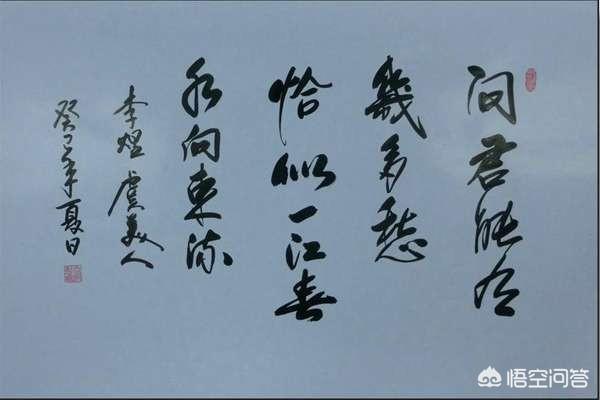 問君能有
幾多愁
恰似一江春
水向東流
李煜 虞美人
癸巳年夏日
悟空问答